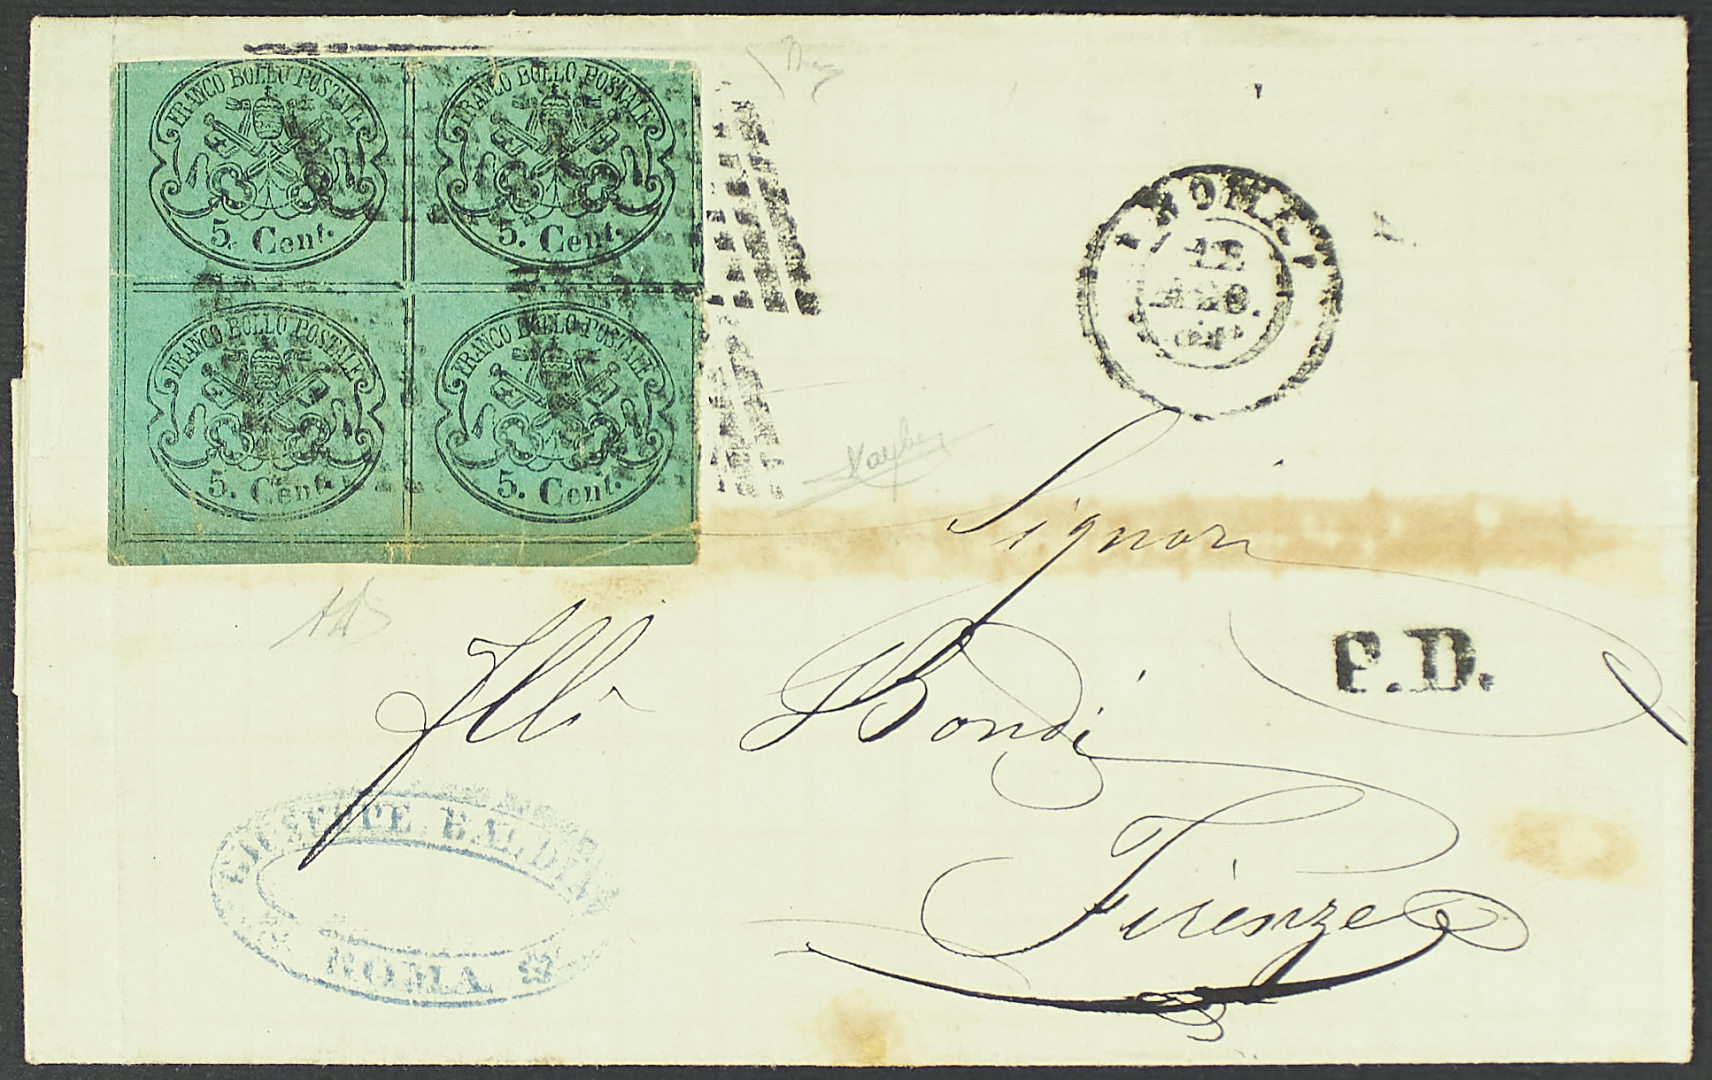 FRANCO BOLLO POSTALE
5. Cent.
FRANCO BOLLO POSTALE
5. Cent.
FRANCO BOLLO POSTALE
5. Cent.
FRANCO BOLLO POSTALE
5. Cent.
ROMA
Signori
P.D.
Illi Bondi
Firenze
GIUSEPPE BALDINI
ROMA